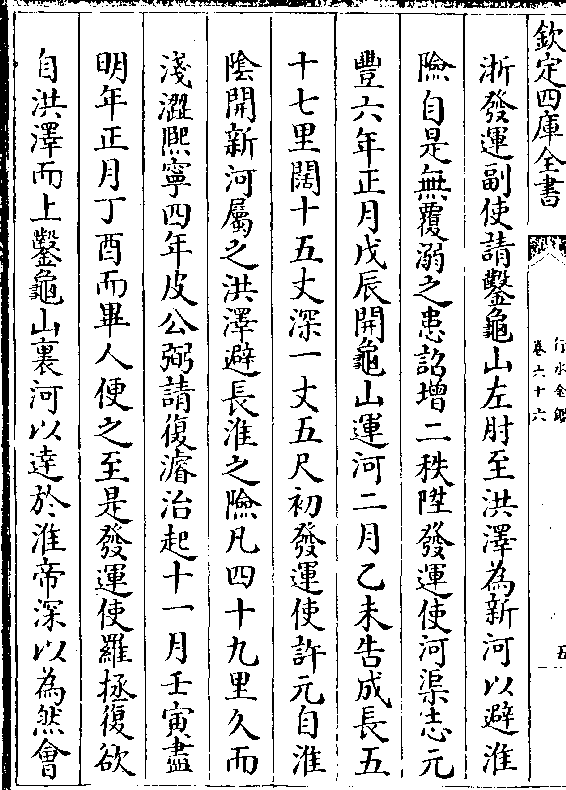 欽定四庫全書
行水金鑑
卷六十六
五
浙發運副使請鑿龜山左肘至洪澤為新河以避淮
險自是無覆溺之患詔增二秩陞發運使河渠志元
豐六年正月戊辰開龜山運河二月乙未告成長五
十七里闊十五丈深一丈五尺初發運使許元自淮
陰開新河屬之洪澤避長淮之險凡四十九里久而
淺澀熙寧四年皮公弼請復濬治起十一月壬寅盡
明年正月丁酉而畢人便之至是發運使羅拯復欲
自洪澤而上鑿龜山裏河以達於淮帝深以為然會